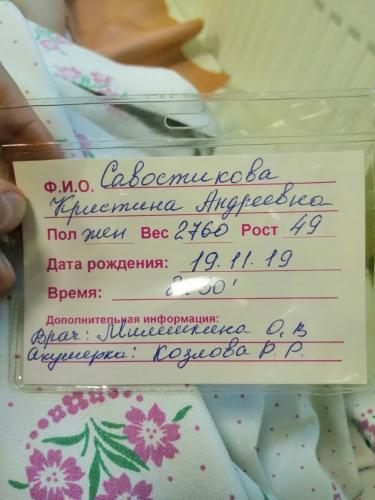 Ф.И.О. Савостикова
Кристина Андреевна
Пол жен Вес 2760 Рост 49
Дата рождения: 19.11.19
Время:
Дополнительная информация:
Врач: Милешкина О.В
Акушерка: Козлова Р.Р.